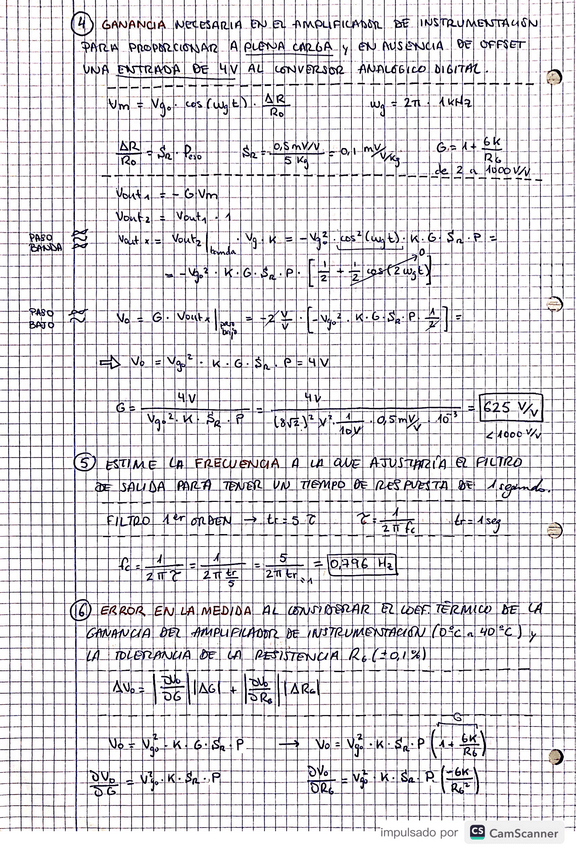 ④ GANANCIA NECESARIA EN EL AMPLIFICADOR DE INSTRUMENTACIÓN
PARA PROPORCIONAR A PLENA CARGA y EN AUSENCIA DE OFFSET
UNA ENTRADA DE 4V AL CONVERSOR ANALÓGICO DIGITAL.
Vm = Vg₀ · cos(ωgt) · ΔR/R₀    ωg = 2π · 1kHz
ΔR/R₀ = SR · Ppeso    SR = 0,5mV/V / 5 Kg = 0,1 mV/V/Kg    G = 1 + 6K/RG
de 2 a 1000 V/V
Vout₁ = -G Vm
Vout₂ = Vout₁ · 1
PASO BANDA Vout x = Vout₂|banda · Vg · K = -Vg₀² · cos²(ωgt) · K · G · SR · P =
= -Vg₀² · K · G · SR · P · [1/2 + 1/2 cos(2ωgt)] 0
PASO BAJO V₀ = G · Vout x|paso bajo = -2 V/V · [-Vg₀² · K · G · SR · P · 1/2] =
⇒ V₀ = Vg₀² · K · G · SR · P = 4V
G = 4V / Vg₀² · K · SR · P = 4V / (8√2)² · V² · 1/10V · 0,5mV/V · 10⁻³ = 625 V/V
< 1000 V/V
⑤ ESTIME LA FRECUENCIA A LA QUE AJUSTARÍA EL FILTRO
DE SALIDA PARA TENER UN TIEMPO DE RESPUESTA DE 1 segundo.
FILTRO 1er ORDEN → tr = 5 τ    τ = 1/2πfc    tr = 1 seg
fc = 1/2πτ = 1/2π tr/5 = 5/2π tr = 0,796 Hz
⑯ ERROR EN LA MEDIDA AL CONSIDERAR EL COEF. TÉRMICO DE LA
GANANCIA DEL AMPLIFICADOR DE INSTRUMENTACIÓN (0°C a 40°C) y
LA TOLERANCIA DE LA RESISTENCIA RG (±0,1%)
ΔV₀ = |∂V₀/∂G| |ΔG| + |∂V₀/∂RG| |ΔRG|
G
V₀ = Vg₀² · K · G · SR · P → V₀ = Vg₀² · K · SR · P (1 + 6K/RG)
∂V₀/∂G = Vg₀² · K · SR · P    ∂V₀/∂RG = Vg₀² · K · SR · P (-6K/RG²)
impulsado por CS CamScanner